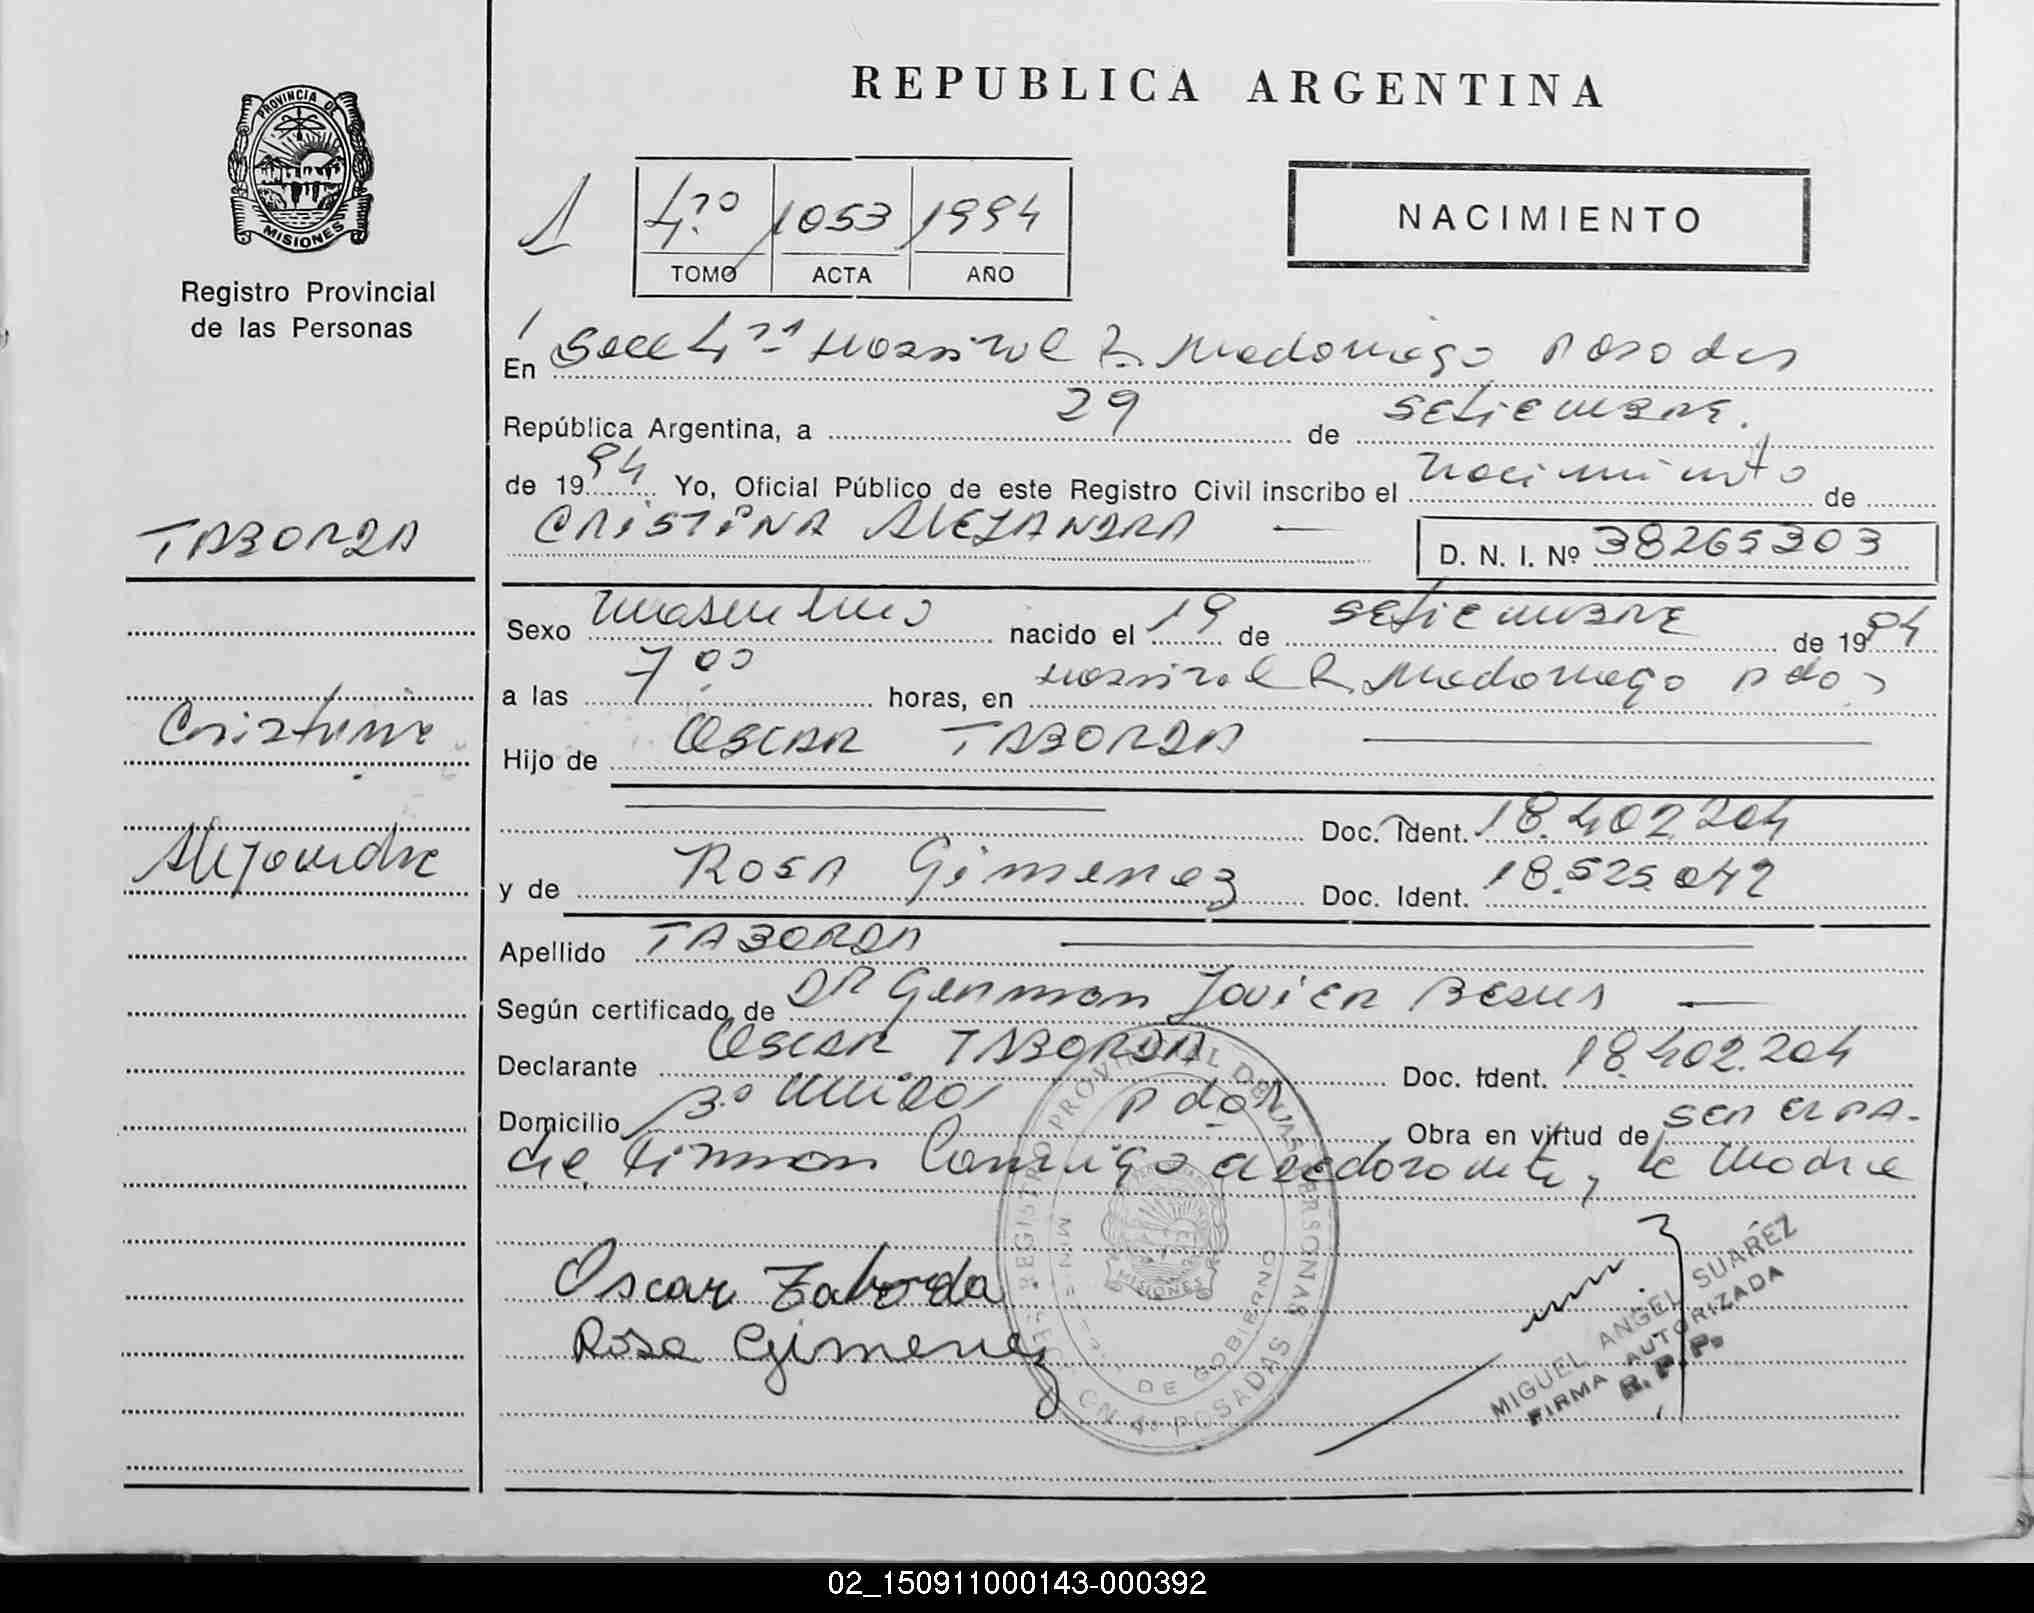 REPUBLICA ARGENTINA
PROVINCIA DE
MISIONES
Registro Provincial
de las Personas
1
4to 1053 1994
TOMO ACTA AÑO
NACIMIENTO
En Secc 4ta Hospital R. Madariaga Posadas
República Argentina, a 29 de setiembre.
de 1994 Yo, Oficial Público de este Registro Civil inscribo el nacimiento de
CRISTINA ALEJANDRA
D. N. I. Nº 38265303
TABORDA
Cristina
Alejandra
Sexo masculino nacido el 19 de setiembre de 1994
a las 7 00 horas, en Hospital R. Madariaga Pdas
Hijo de OSCAR TABORDA
Doc. Ident. 18.402.204
y de ROSA Gimenez Doc. Ident. 18.525.042
Apellido TABORDA
Según certificado de DR German Javier Besus
Declarante OSCAR TABORDA Doc. Ident. 18.402.204
Domicilio Pdas Obra en virtud de ser el pa-
dre, firman conmigo el declarante, la madre
Oscar Taborda
Rosa Gimenez
REGISTRO PROVINCIAL DE LAS PERSONAS
DE GOBIERNO
MISIONES
4º POSADAS
MIGUEL ANGEL SUAREZ
FIRMA AUTORIZADA
R. P. P.
02_150911000143-000392